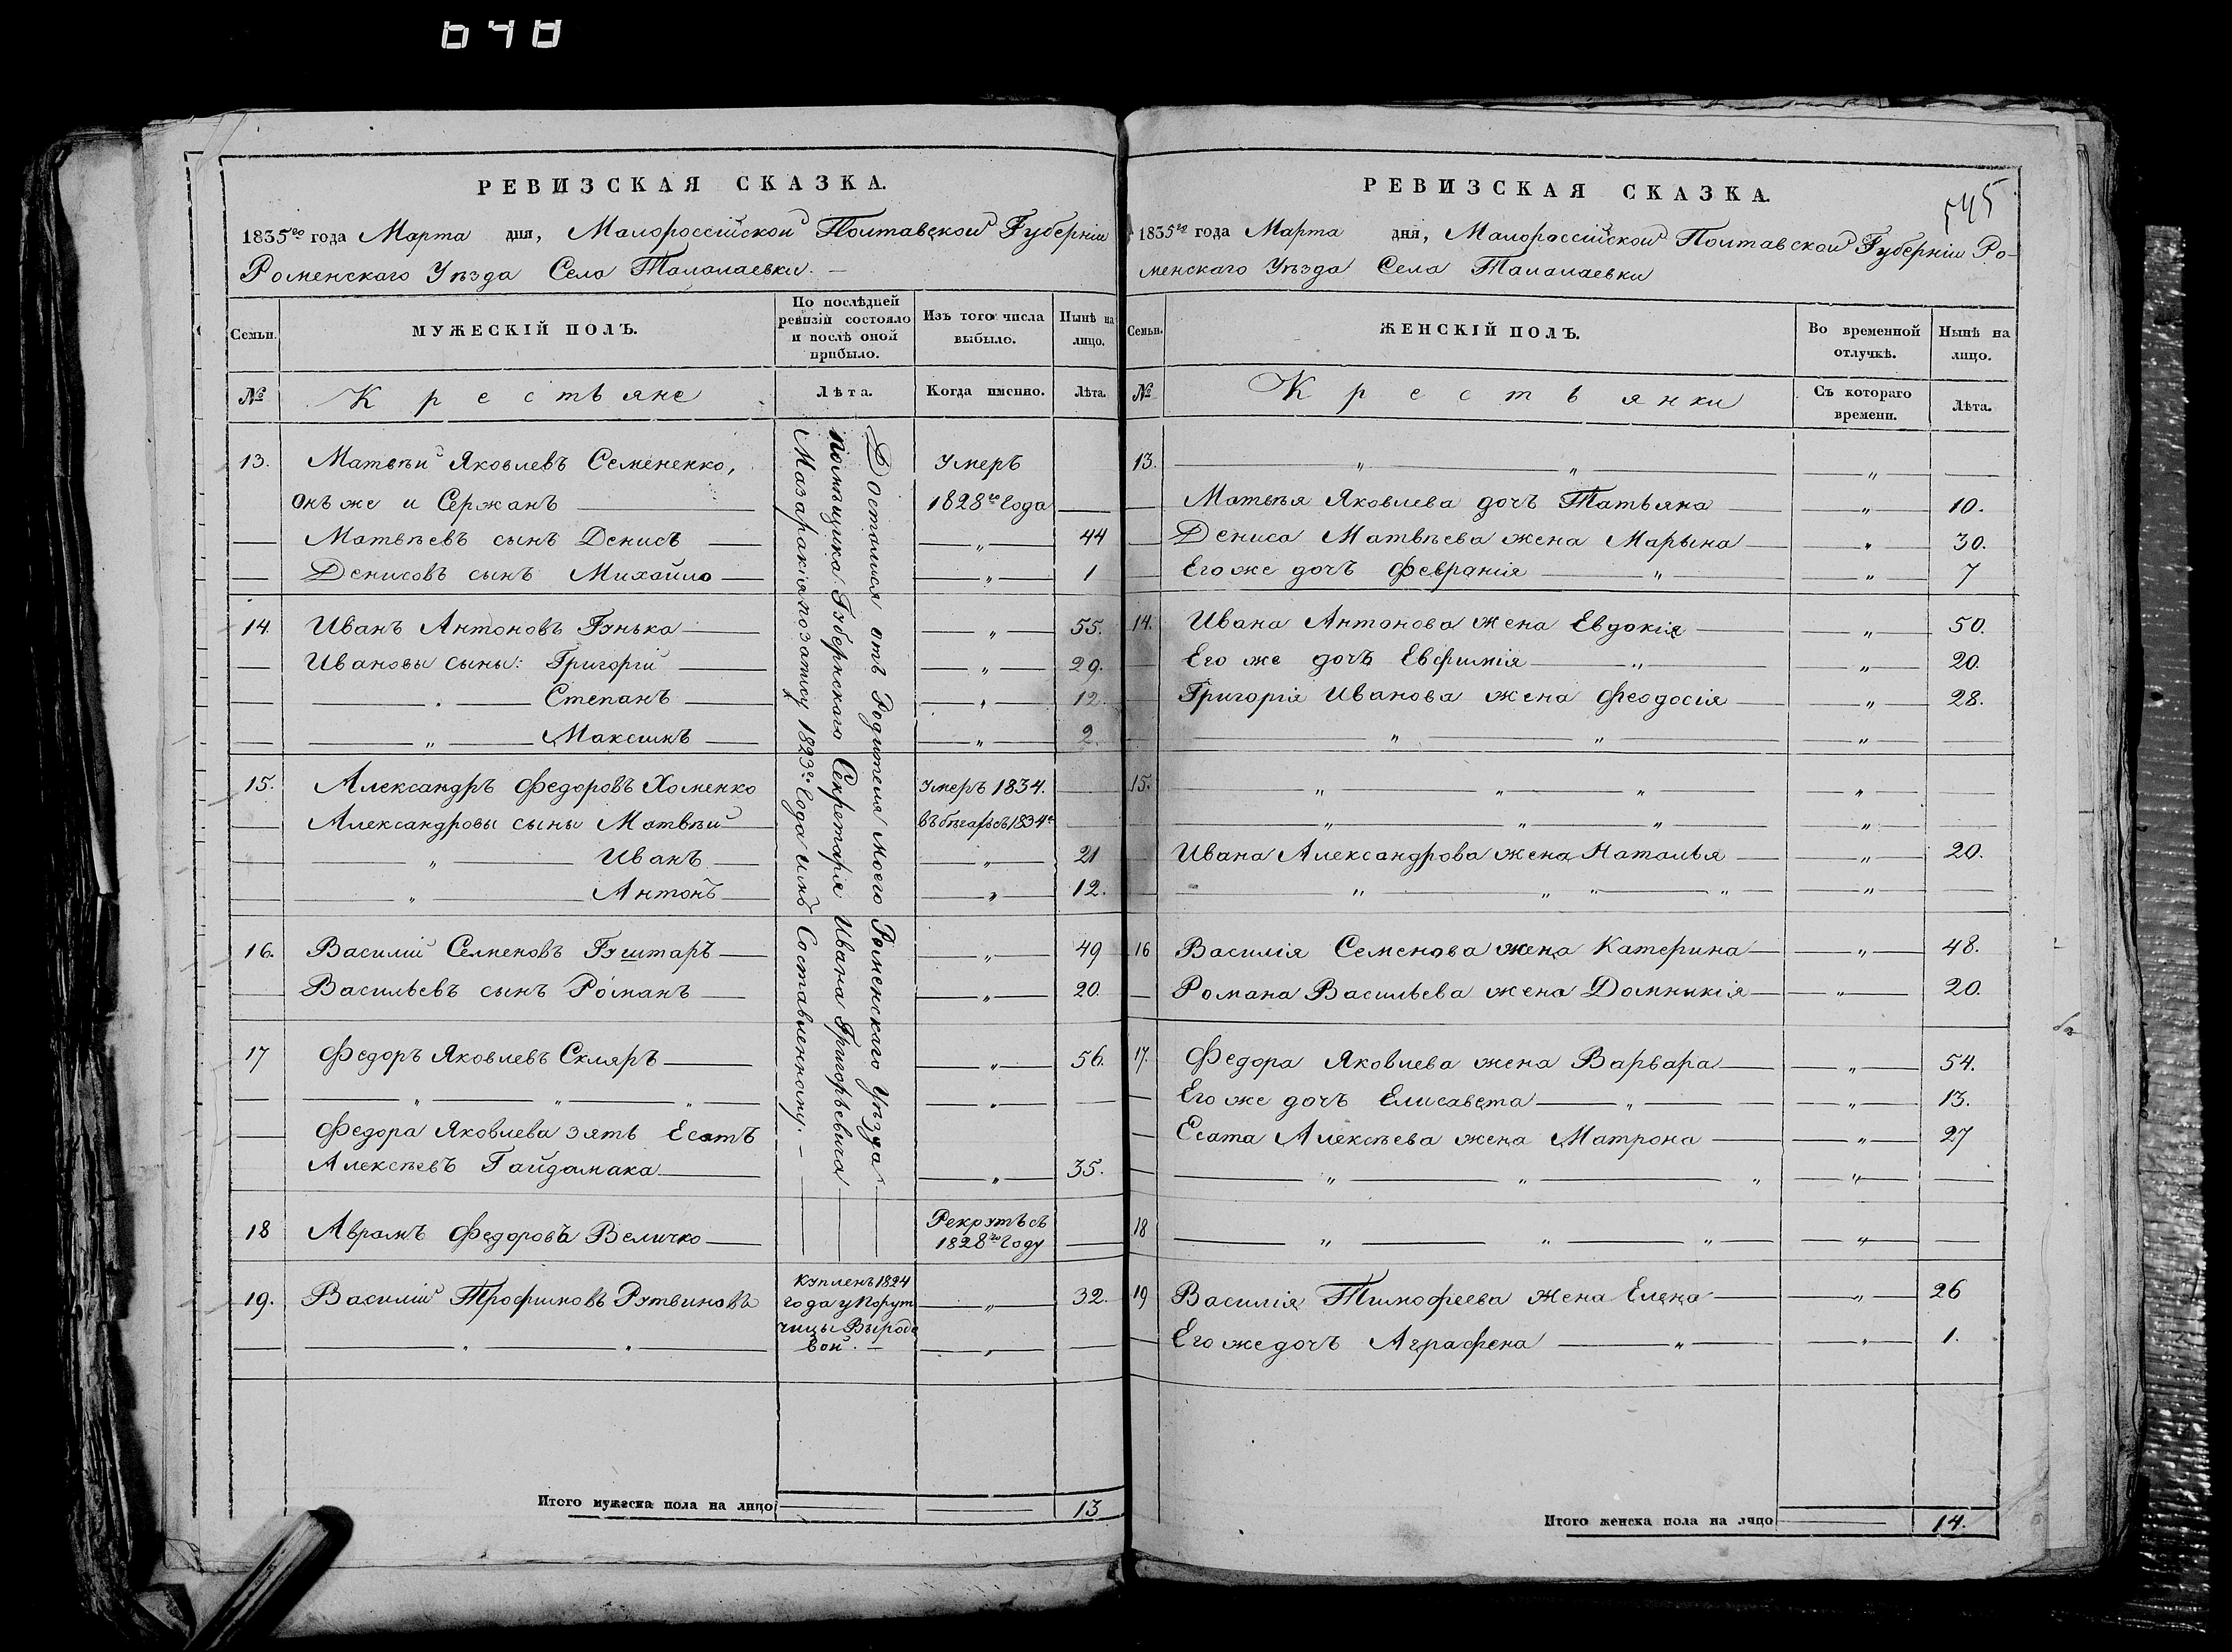 648
РЕВИЗСКАЯ СКАЗКА.
1835го года Марта дня, Малороссійской Полтавской Губерніи
Роменскаго Уѣзда Села Талалаевки. —
Семьи.
МУЖЕСКІЙ ПОЛЪ.
По послѣдней ревизіи состояло и послѣ оной прибыло.
Изъ того числа выбыло.
Нынѣ на лицо.
№
Крестьяне
Лѣта.
Когда именно.
Лѣта.
Достался отъ Родителя моего Роменскаго Уѣзда
помѣщика Губернскаго Секретаря Ивана Григорьевича
Мазаракія по записи 1823го Года имъ Составленному. —
13. Матвѣй Яковлевъ Семененко, Умеръ
онъ же и Сержанъ 1828го Года
Матвѣевъ сынъ Денисъ " 44
Денисовъ сынъ Михайло " 1
14. Иванъ Антоновъ Гунька " 55.
Ивановы сыны: Григорій " 29.
" Степанъ " 12.
" Максимъ " 2.
15. Александръ Федоровъ Хоменко Умеръ 1834.
Александровы сыны Матвѣй въ бѣгахъ съ 1834г
" Иванъ " 21
" Антонъ " 12.
16. Василій Семеновъ Гуштаръ " 49
Васильевъ сынъ Романъ " 20.
17 Федоръ Яковлевъ Скляръ " 56.
" " " "
Федора Яковлева зять Есатъ
Алексѣевъ Гайдамака " 35.
18 Аврамъ Федоровъ Величко Рекрутъ съ
1828го Году
19. Василій Трофимовъ Рутвиновъ Купленъ 1824 года у Порутчицы Выродовой. — " 32.
" " "
Итого мужеска пола на лицо 13
РЕВИЗСКАЯ СКАЗКА.
545
1835го года Марта дня, Малороссійской Полтавской Губерніи Ро-
менскаго Уѣзда Села Талалаевки
Семьи.
ЖЕНСКІЙ ПОЛЪ.
Во временной отлучкѣ.
Нынѣ на лицо.
№
Крестьянки
Съ котораго времени.
Лѣта.
13. " " "
Матвѣя Яковлева дочь Татьяна " 10.
Дениса Матвѣева жена Марына " 30.
Его же дочь Февранія " " 7
14. Ивана Антонова жена Евдокія " 50.
Его же дочь Евфимія " " 20.
Григорія Иванова жена Феодосія " 28.
" " "
15. " " " "
" " " "
Ивана Александрова жена Наталья " 20.
" " " " "
16 Василія Семенова жена Катерина " 48.
Романа Васильева жена Домникія " 20.
17. Федора Яковлева жена Варвара " 54.
Его же дочь Елисавета " " 13.
Есата Алексѣева жена Матрона " 27
" " " "
18 " " " "
19 Василія Тимофеева жена Елена " 26
Его же дочь Аграфена " " 1.
Итого женска пола на лицо 14.